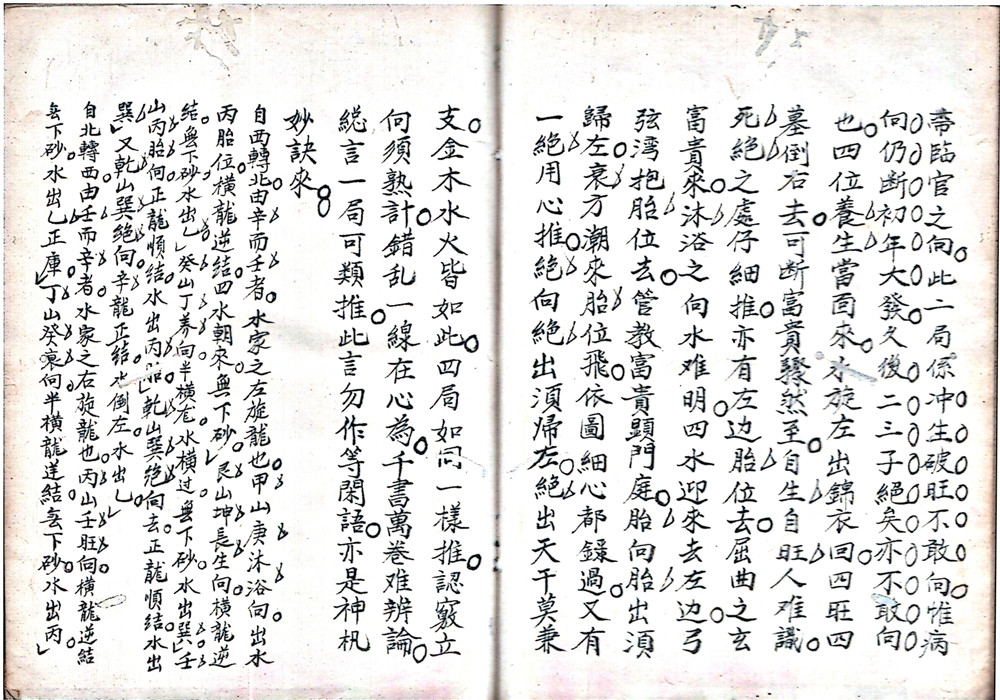 帶臨官之向此二局係冲生破旺不敢向惟病
向仍断初年大發久後二三子絕矣亦不敢向
也四位養生當面來水旋左出錦衣回四旺四
墓倒右去可断富貴驟然至自生自旺人难識
死絕之處仔細推亦有左边胎位去屈曲之玄
富貴來沐浴之向水难明四水迎來去左边弓
弦湾抱胎位去管教富貴顕門庭胎向胎出須
歸左衰方潮來胎位飛依圖細心都錄過又有
一絕用心推絕向絕出須帰左絕出天干莫兼
支金木水火皆如此四局如同一樣推認竅立
何須熟計錯乱一線在心為千書萬卷难辨論
総言一局可類推此言勿作等閑語亦是神机
妙訣來
自西轉北由辛而壬者水家之左旋龍也甲山庚沐浴向出水
丙胎位橫龍逆結四水朝來無下砂艮山坤長生向橫龍逆
結無下砂水出乙癸山丁養向半橫左水橫过無下砂水出巽壬
山丙胎向正龍順結水出丙胎乾山巽絕向去正龍順結水出
巽又乾山巽絕向辛龍正結水倒左水出乙
自北轉西由壬而辛者水家之右旋龍也丙山壬旺向橫龍逆結
無下砂水出乙正庫丁山癸衰向半橫龍逆結無下砂水出丙